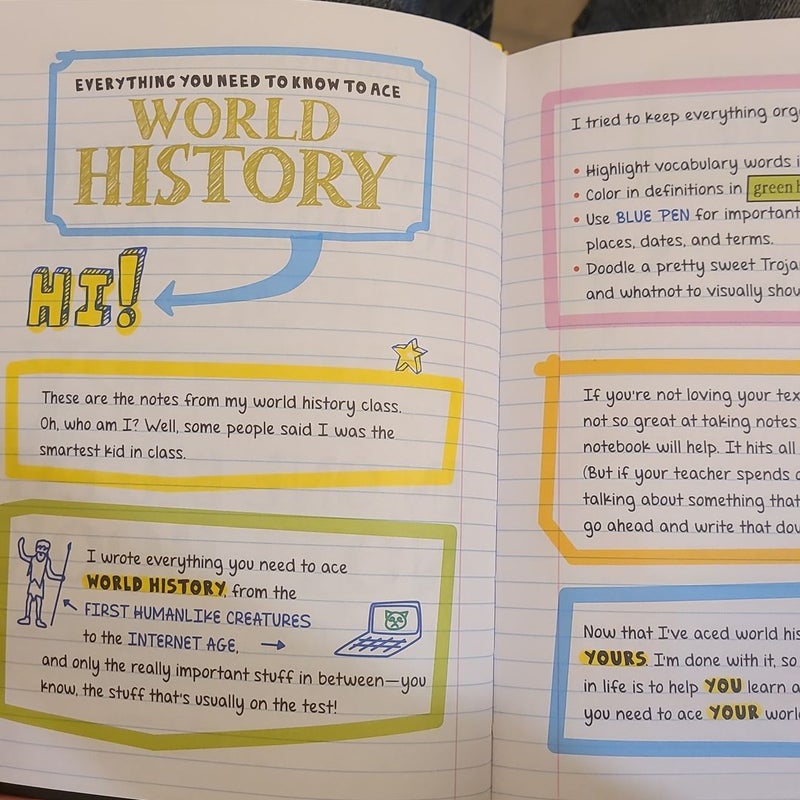 EVERYTHING YOU NEED TO KNOW TO ACE
WORLD
HISTORY
HI!
These are the notes from my world history class.
Oh, who am I? Well, some people said I was the
smartest kid in class.
I wrote everything you need to ace
WORLD HISTORY, from the
FIRST HUMANLIKE CREATURES
to the INTERNET AGE,
and only the really important stuff in between—you
know, the stuff that's usually on the test!
I tried to keep everything
• Highlight vocabulary words
• Color in definitions in green
• Use BLUE PEN for important
places, dates, and terms.
• Doodle a pretty sweet
and whatnot to visually
If you're not loving your
not so great at taking notes
notebook will help. It hits all
(But if your teacher spends
talking about something that
go ahead and write that
Now that I've aced world
YOURS. I'm done with it, so
in life is to help YOU learn
you need to ace YOUR